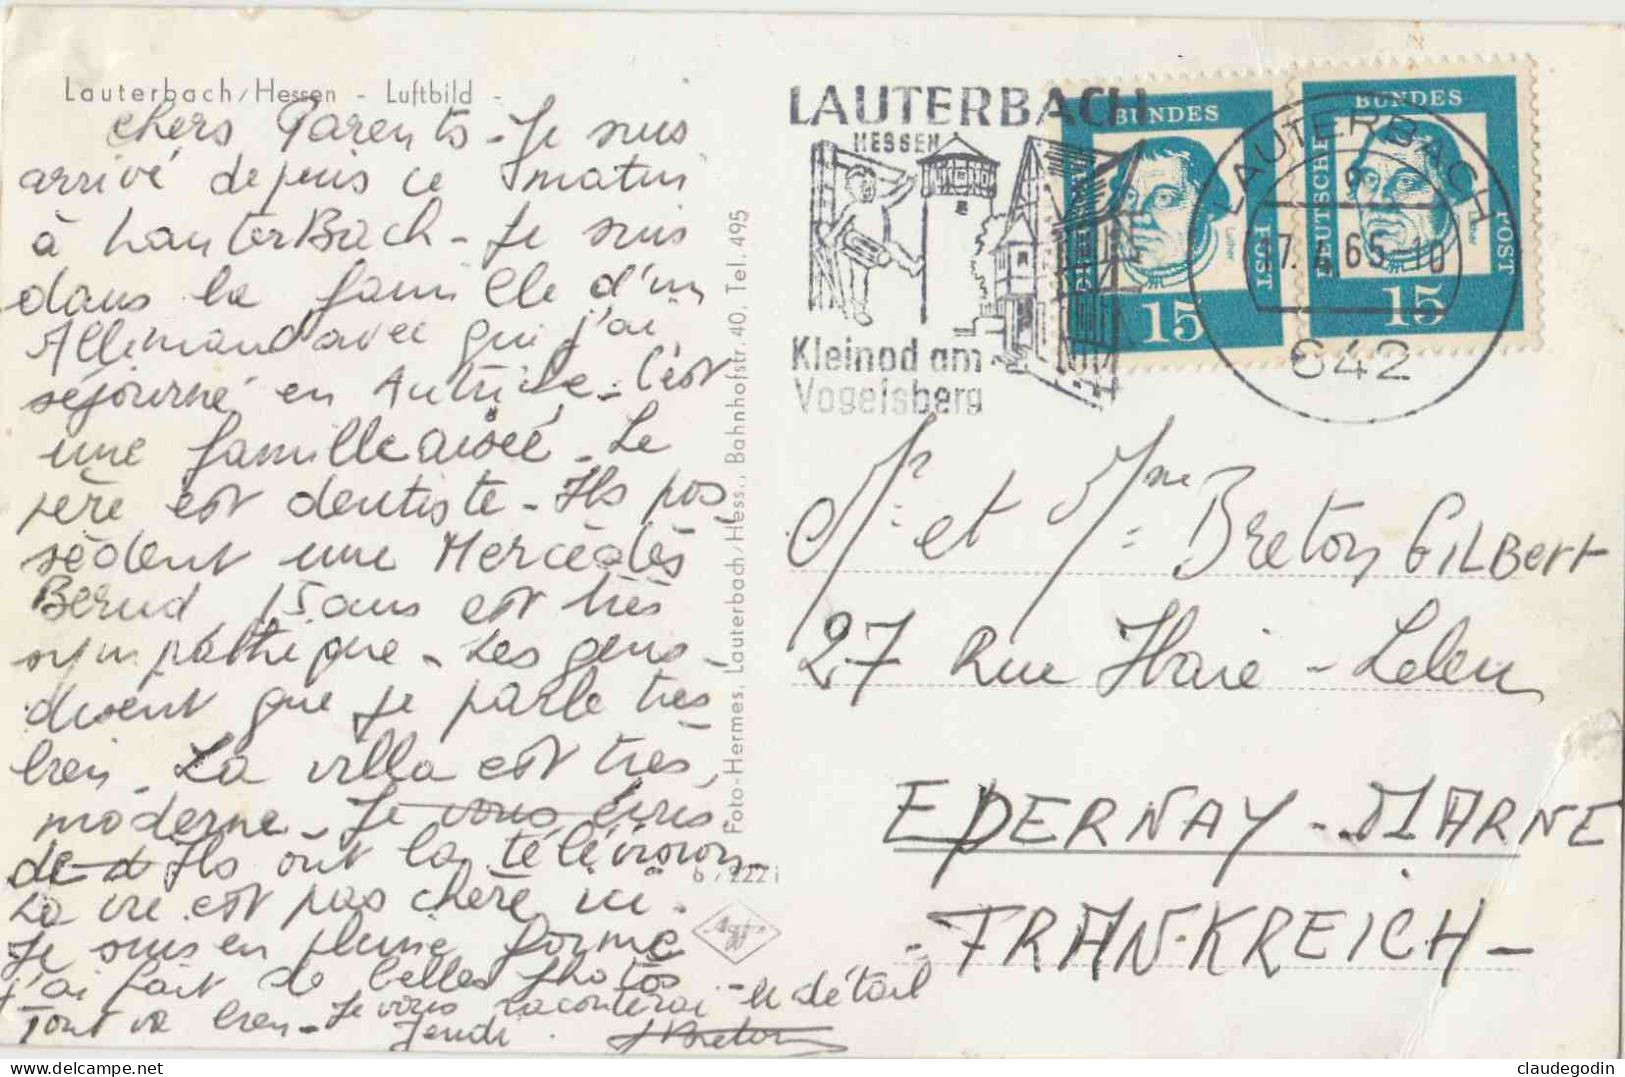 Lauterbach/Hessen - Luftbild -
chers Parents - Je suis
arrivé depuis ce matin
à LauterBach - Je suis
dans la famille d'un
Allemand avec qui j'ai
séjourné en Autriche - C'est
une famille aisée - Le
père est dentiste - Ils pos
sèdent une Mercédès
Bernd 15 ans est très
sympathique - Les gens
disent que je parle très
bien - La villa est très
moderne - Je vous écris
de d Ils ont la télévision
La vie est pas chère ici -
Je suis en pleine forme
J'ai fait de belles photos
Tout va bien - Je vous raconterai le détail
Jeudi. Breton
Foto-Hermes, Lauterbach/Hess., Bahnhofstr. 40, Tel. 495
6/2221
Agfa
LAUTERBACH
HESSEN
Kleinod am
Vogelsberg
DEUTSCHE
BUNDES
POST
Luther
15
DEUTSCHE
BUNDES
POST
Luther
15
LAUTERBACH
65-10
642
Mr et Mme Breton GILBert
27 Rue Haie - Leleu
EPERNAY - MARNE
- FRANKREICH -
claudegodin